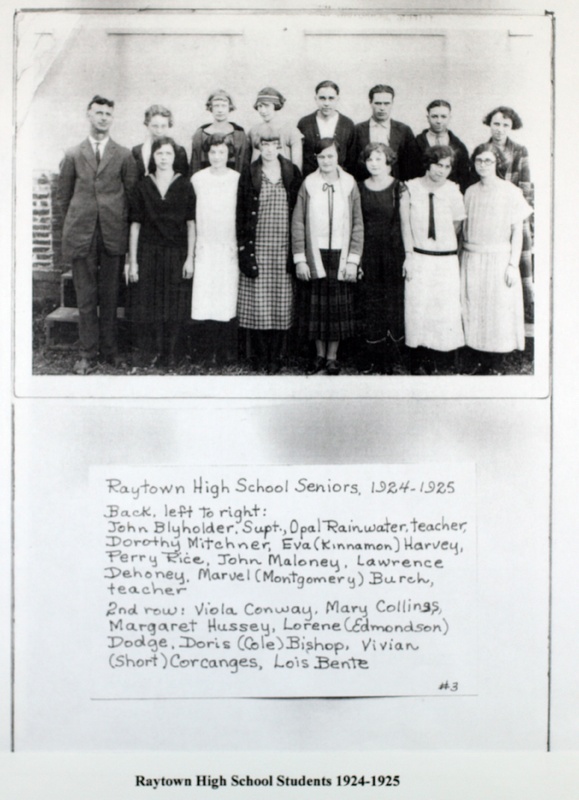 Raytown High School Seniors, 1924-1925
Back, left to right:
John Blyholder, Supt., Opal Rainwater, teacher,
Dorothy Mitchner, Eva (Kinnamon) Harvey,
Perry Rice, John Maloney, Lawrence
Dehoney, Marvel (Montgomery) Burch,
teacher
2nd row: Viola Conway, Mary Collings,
Margaret Hussey, Lorene (Edmondson)
Dodge, Doris (Cole) Bishop, Vivian
(Short) Corcanges, Lois Bente
#3
Raytown High School Students 1924-1925